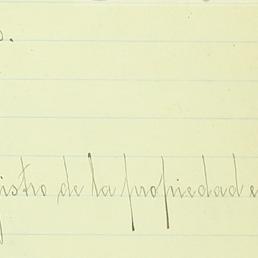 s.
istro de la propiedad e